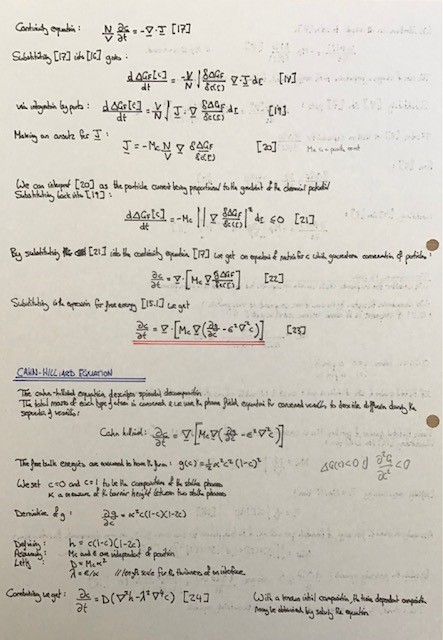 Continuity equation: N/V ∂c/∂t = -∇·J [17]
Substituting [17] into [16] gives:
dΔG_F[c]/dt = -V/N ∫ δΔG_F/δc(r) ∇·J dr [18]
via integration by parts: dΔG_F[c]/dt = V/N ∫ J·∇ δΔG_F/δc(r) dr [19]
Making an ansatz for J:
J = -Mc N/V ∇ δΔG_F/δc(r) [20] Mc is a
We can interpret [20] as the particle current being proportional to the gradient of the chemical potential
Substituting back into [19]:
dΔG_F[c]/dt = -Mc ∫ |∇ δΔG_F/δc(r)|² dr ≤ 0 [21]
By substituting [21] into the continuity equation [17] we get an equation of motion for c which guarantees conservation of particles:
∂c/∂t = ∇·[Mc ∇ δΔG_F/δc(r)] [22]
Substituting in the expression for free energy [15.1] we get
∂c/∂t = ∇·[Mc ∇(∂g/∂c - ε²∇²c)] [23]
CAHN-HILLIARD EQUATION
The cahn-hilliard equation describes spinodal decomposition
The total mass of each type of atom is conserved & we use the phase field equation for conserved variables to describe diffusion during the
separation of
Cahn hilliard: ∂c/∂t = ∇·[Mc ∇(∂g/∂c - ε²∇²c)]
The free bulk energies are assumed to have the form: g(c) = ½α²c²(1-c)² ΔG(c)<0 if ∂²G/∂c² < 0
We set c=0 and c=1 to be the composition of the stable phases
α a measure of the barrier height between two stable phases
Derivative of g: ∂g/∂c = α²c(1-c)(1-2c)
Defining: h = c(1-c)(1-2c)
Assuming: Mc and ε are independent of position
Letting D = Mcα²
λ = ε/α // length scale for the thickness of an interface
Combining we get: ∂c/∂t = D(∇²h - λ²∇⁴c) [24] With a known initial composition, the time dependent composition
may be obtained by solving the equation